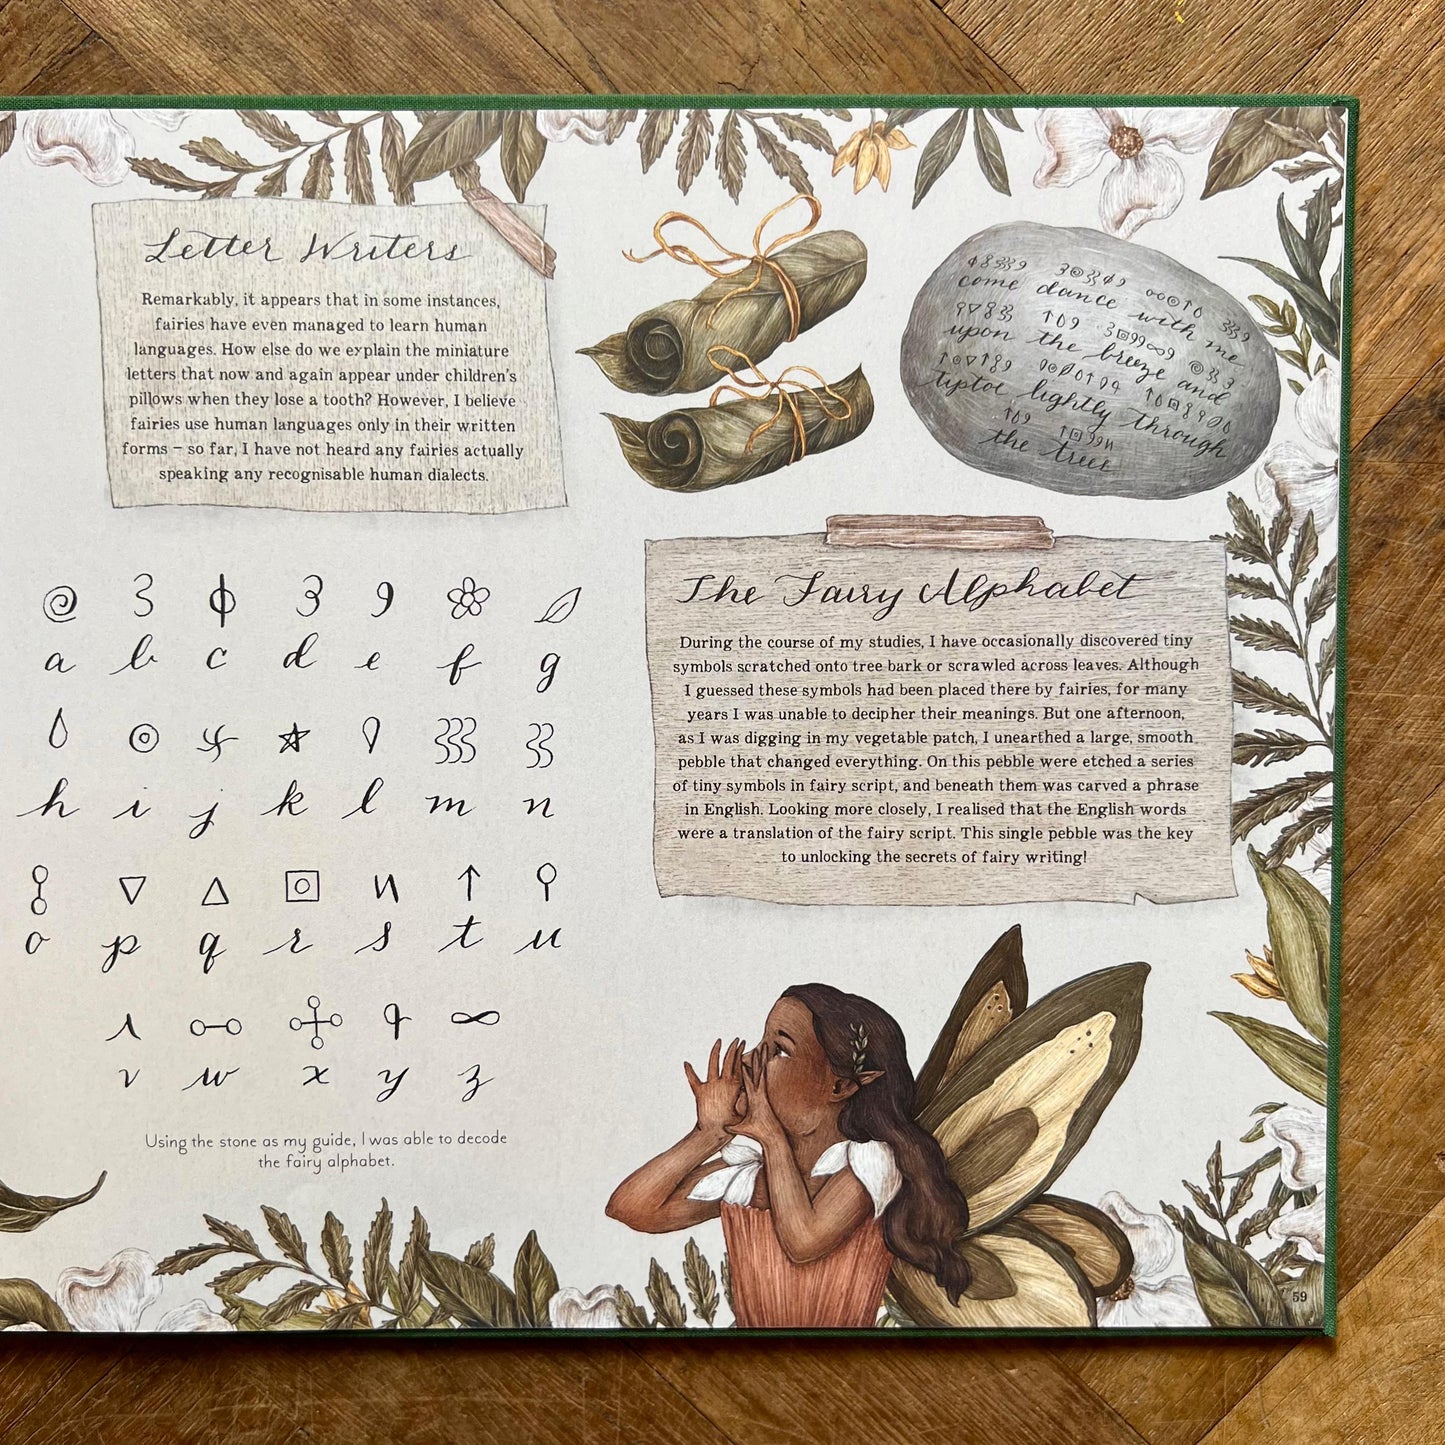 Letter Writers
Remarkably, it appears that in some instances,
fairies have even managed to learn human
languages. How else do we explain the miniature
letters that now and again appear under children's
pillows when they lose a tooth? However, I believe
fairies use human languages only in their written
forms – so far, I have not heard any fairies actually
speaking any recognisable human dialects.
come dance with me
upon the breeze and
tiptoe lightly through
the trees
a b c d e f g
h i j k l m n
o p q r s t u
v w x y z
Using the stone as my guide, I was able to decode
the fairy alphabet.
The Fairy Alphabet
During the course of my studies, I have occasionally discovered tiny
symbols scratched onto tree bark or scrawled across leaves. Although
I guessed these symbols had been placed there by fairies, for many
years I was unable to decipher their meanings. But one afternoon,
as I was digging in my vegetable patch, I unearthed a large, smooth
pebble that changed everything. On this pebble were etched a series
of tiny symbols in fairy script, and beneath them was carved a phrase
in English. Looking more closely, I realised that the English words
were a translation of the fairy script. This single pebble was the key
to unlocking the secrets of fairy writing!
59